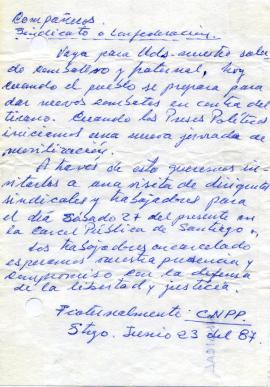 Compañeros.
Sindicato o Confederación.
Vaya para Uds. nuestro salu-
do combativo y fraternal, hoy
cuando el pueblo se prepara para
dar nuevos combates en contra del
tirano. Cuando los Presos Políticos
iniciamos una nueva jornada de
movilización.
A través de esto queremos in-
vitarlos a una visita de dirigentes
sindicales y trabajadores para
el día Sábado 27 del presente en
la Carcel Pública de Santiago,
Los trabajadores encarcelados
esperamos vuestra presencia y
compromiso en la defensa
de la libertad y justicia.
Fraternalmente: CNPP.
Stgo. Junio 23 del 87.